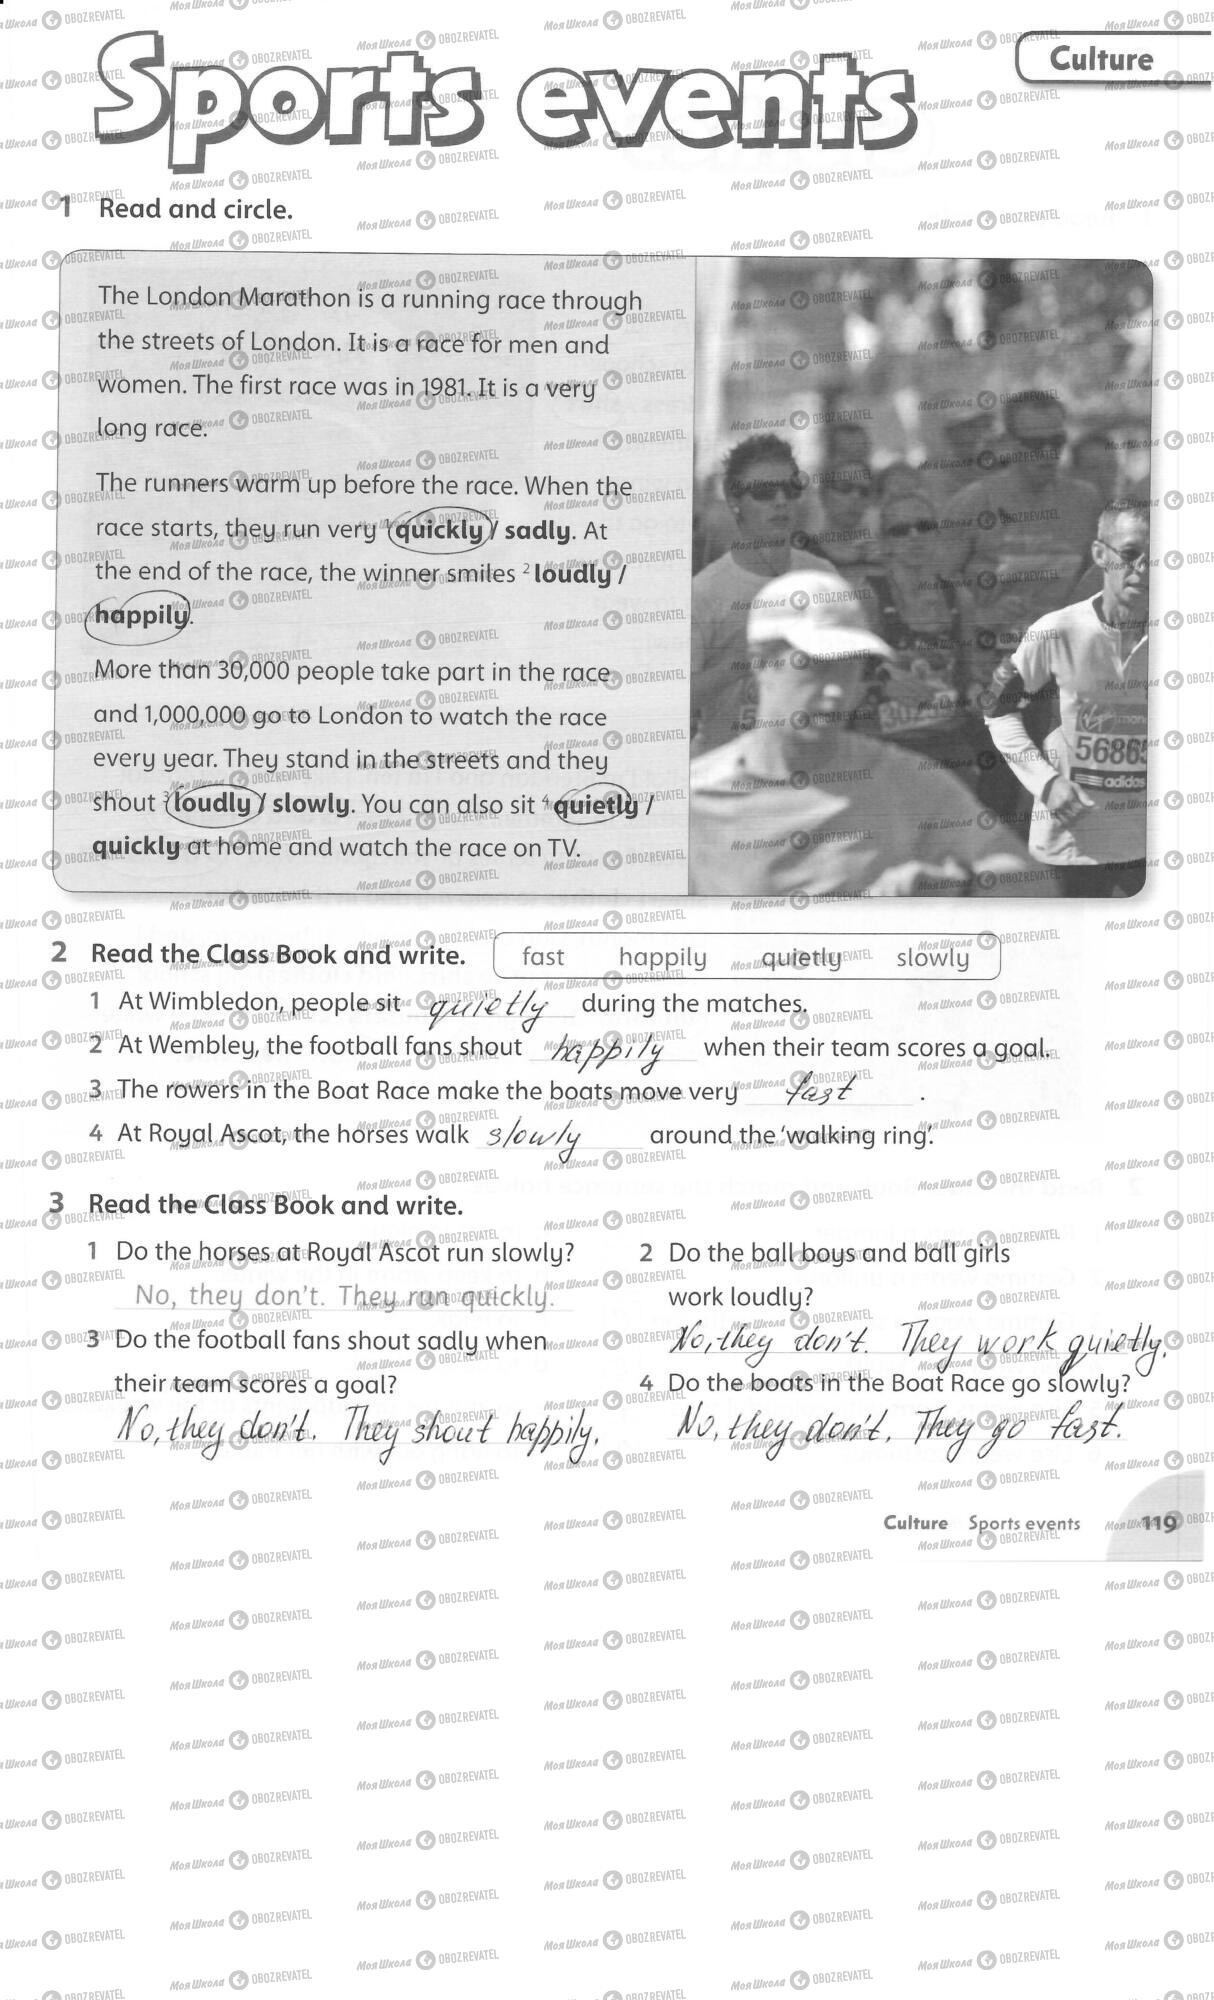 Sports events
Culture
1 Read and circle.
The London Marathon is a running race through
the streets of London. It is a race for men and
women. The first race was in 1981. It is a very
long race.
The runners warm up before the race. When the
race starts, they run very 1 quickly / sadly. At
the end of the race, the winner smiles 2 loudly /
happily.
More than 30,000 people take part in the race
and 1,000,000 go to London to watch the race
every year. They stand in the streets and they
shout 3 loudly / slowly. You can also sit 4 quietly /
quickly at home and watch the race on TV.
56865
adidas
2 Read the Class Book and write.
fast happily quietly slowly
1 At Wimbledon, people sit quietly during the matches.
2 At Wembley, the football fans shout happily when their team scores a goal.
3 The rowers in the Boat Race make the boats move very fast .
4 At Royal Ascot, the horses walk slowly around the ‘walking ring’.
3 Read the Class Book and write.
1 Do the horses at Royal Ascot run slowly?
No, they don't. They run quickly.
2 Do the ball boys and ball girls
work loudly?
No, they don't. They work quietly.
3 Do the football fans shout sadly when
their team scores a goal?
No, they don't. They shout happily.
4 Do the boats in the Boat Race go slowly?
No, they don't. They go fast.
Culture Sports events 119
МояШкола OBOZREVATEL